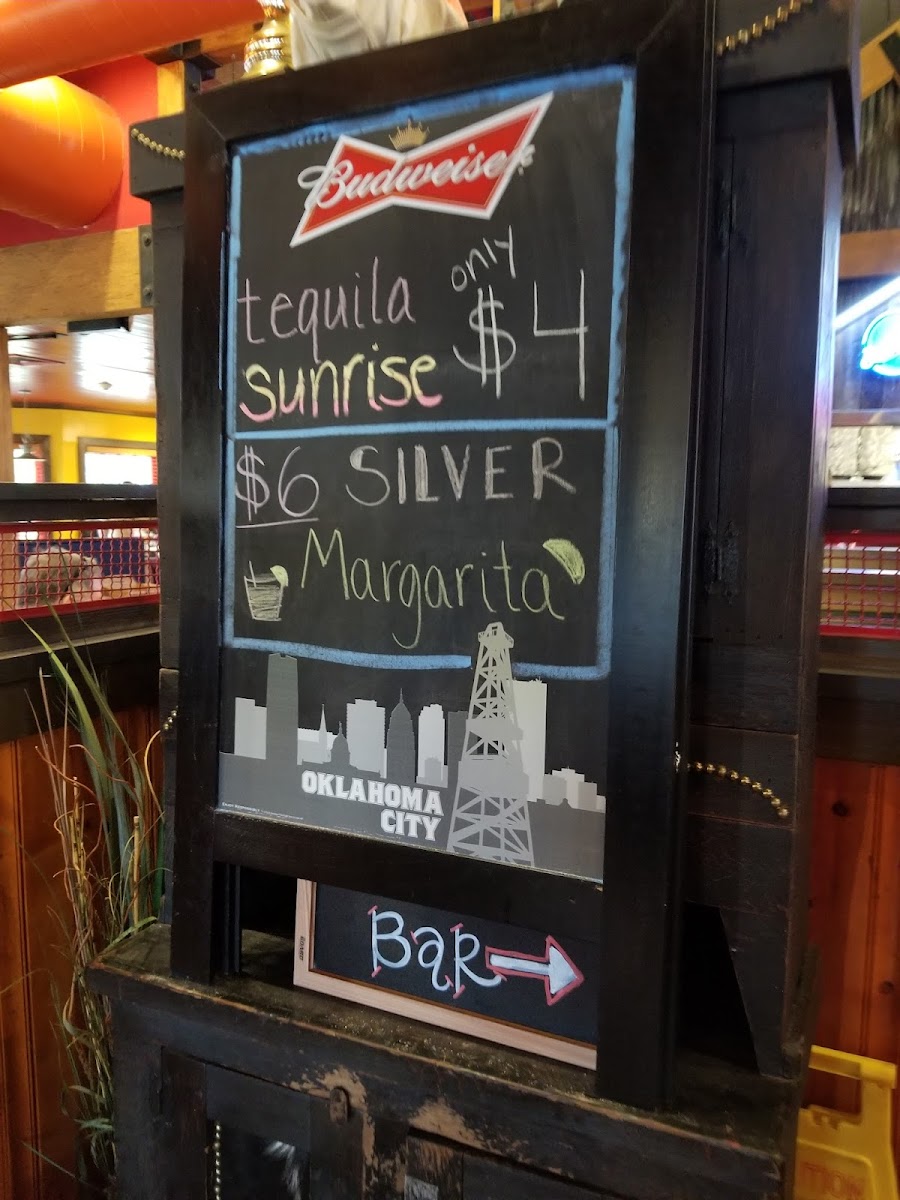 Budweiser
tequila only
sunrise $4
$6 SILVER
Margarita
OKLAHOMA
CITY
BAR